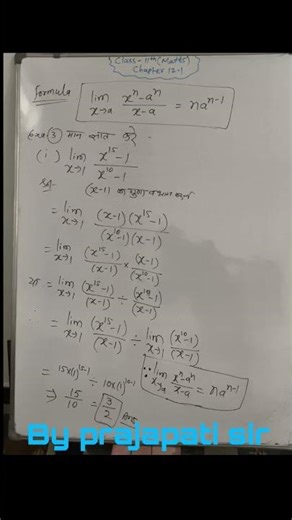 Class-11th (Maths)
Chapter 12.1
formula lim x→a (xⁿ-aⁿ)/(x-a) = naⁿ⁻¹
③ मान ज्ञात करे
(i) lim x→1 (x¹⁵-1)/(x¹⁰-1)
(x-1) का गुणा व भाग
= lim x→1 (x-1)(x¹⁵-1)/(x¹⁰-1)(x-1)
= lim x→1 (x¹⁵-1)/(x-1) × (x-1)/(x¹⁰-1)
या = lim x→1 (x¹⁵-1)/(x-1) ÷ (x¹⁰-1)/(x-1)
= lim x→1 (x¹⁵-1)/(x-1) ÷ lim x→1 (x¹⁰-1)/(x-1)
= 15×(1)¹⁵⁻¹ ÷ 10×(1)¹⁰⁻¹
∵ lim x→a (xⁿ-aⁿ)/(x-a) = naⁿ⁻¹
⇒ 15/10 = 3/2 Ans
By prajapati sir